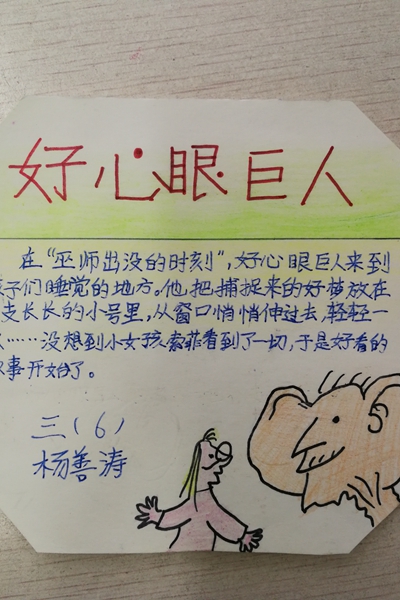 好心眼巨人
在“巫师出没的时刻”,好心眼巨人来到
孩子们睡觉的地方,他把捕捉来的好梦放在
支长长的小号里,从窗口悄悄伸过去,轻轻一
吹……没想到小女孩索菲看到了一切,于是好看的
故事开始了。
三(6)
杨善涛